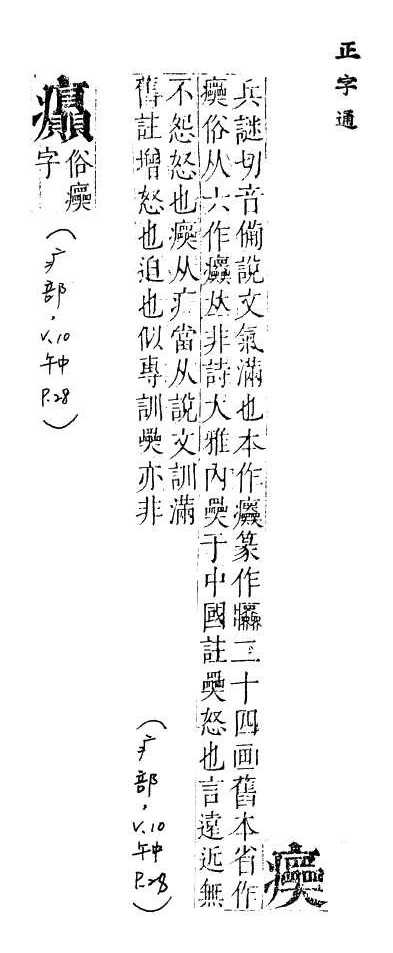 正字通
兵謎切音備說文氣滿也本作篆作三十四画舊本省作
俗从六作𠀤非詩大雅內奰于中國註奰怒也言遠近無
不怨怒也从疒當从說文訓滿
舊註增怒也迫也似專訓奰亦非
(疒部, V.10 午中 P.28)
俗
字
(疒部, V.10 午中 P.28)